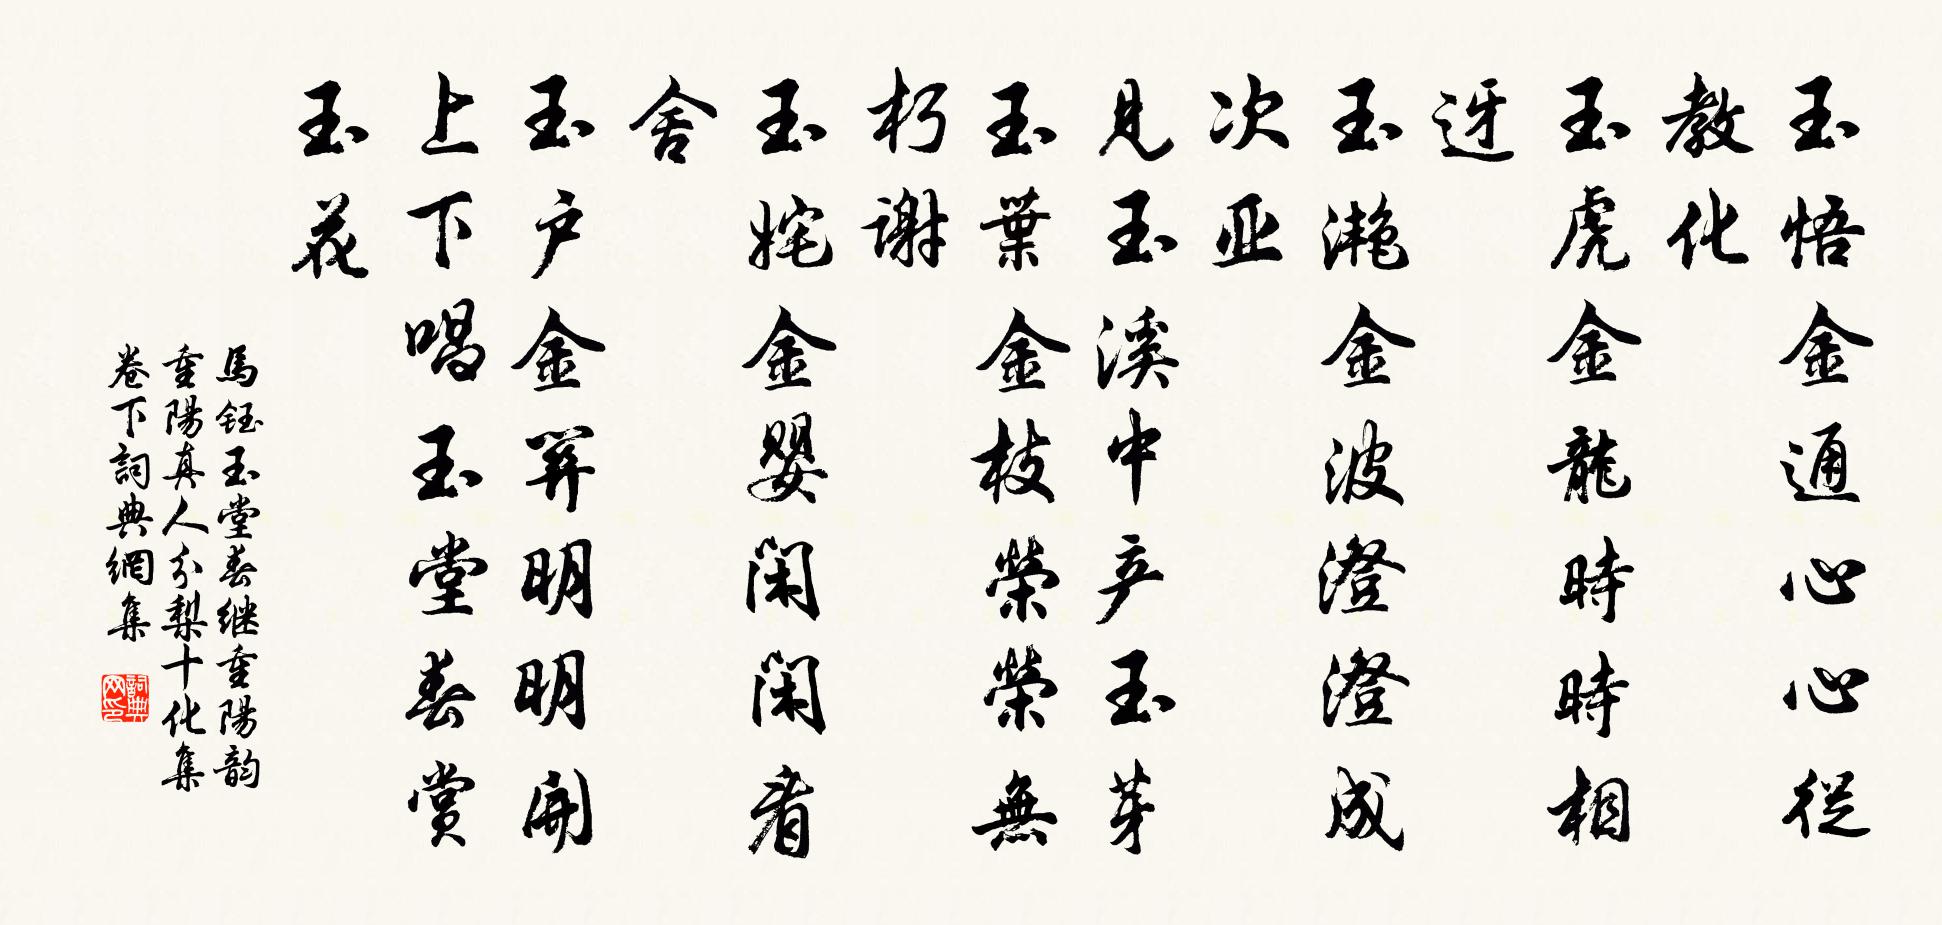 玉悟金通心心從
教化
玉虎金龍時時相
迓
玉滟金波澄澄成
次亚
見玉溪中产玉芽
玉葉金枝榮榮無
朽謝
玉姹金嬰闲闲看
舍
玉户金笄明明開
上下唱玉堂春赏
玉花
馬鈺玉堂春继重陽韵
重陽真人分梨十化集
卷下詞典網集